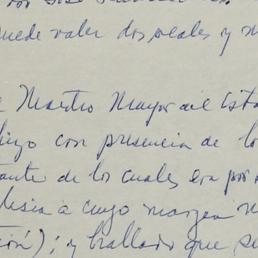 por José
puede valer dos reales y m
Maestro Mayor del Esta
hizo con presencia de lo
tante de los cuales era por
lesia a cuyo margen
ión); y hallado que se